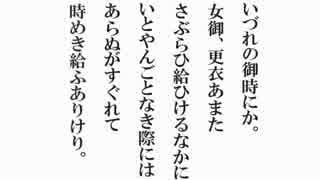 いづれの御時にか。
女御、更衣あまた
さぶらひ給ひけるなかに
いとやんごとなき際には
あらぬがすぐれて
時めき給ふありけり。